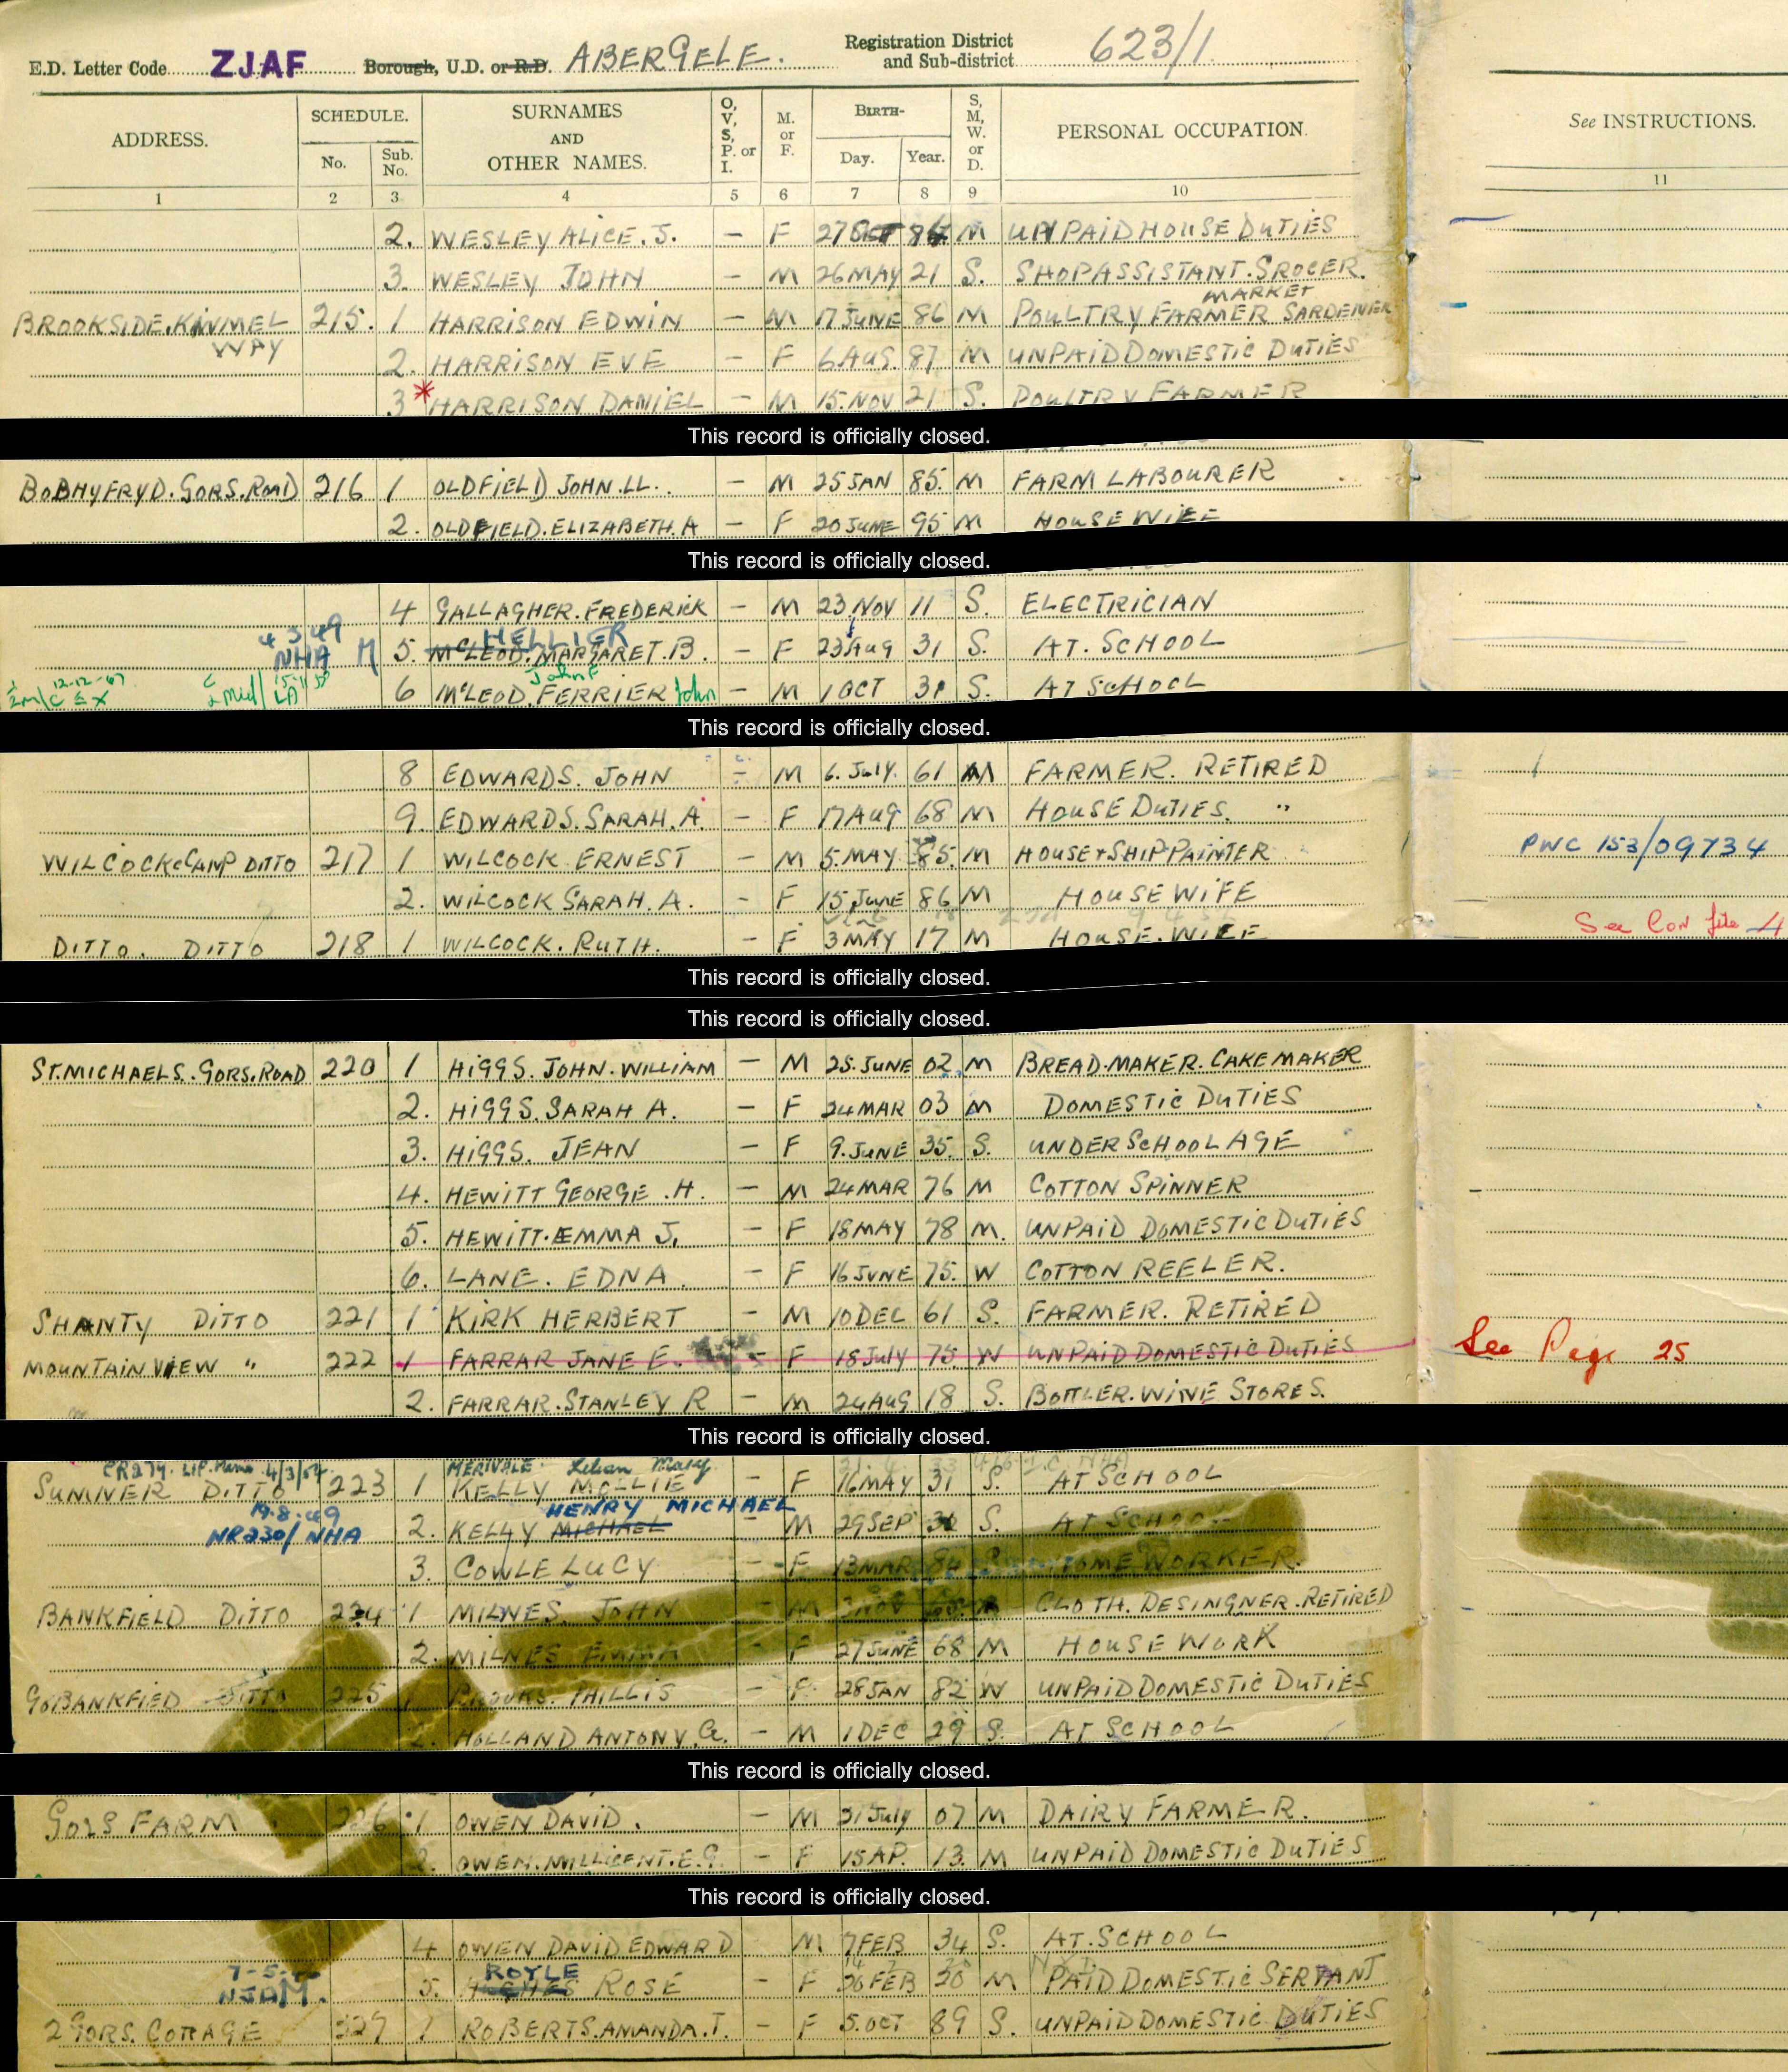 E.D. Letter Code ZJAF Borough, U.D. or R.D. ABERGELE. Registration District and Sub-district 623/1
ADDRESS. SCHEDULE. No. Sub. No. SURNAMES AND OTHER NAMES. O, V, S, P. or I. M. or F. BIRTH- Day. Year. S, M, W. or D. PERSONAL OCCUPATION. See INSTRUCTIONS.
1 2 3 4 5 6 7 8 9 10 11
2. WESLEY ALICE. J. – F 27 OCT M UNPAID HOUSE DUTIES
3. WESLEY JOHN – M 26 MAY 21 S. SHOP ASSISTANT. GROCER.
MARKET
BROOKSIDE. KINMEL 215. 1 HARRISON EDWIN – M 17 JUNE 86 M POULTRY FARMER GARDENER
WAY
2. HARRISON EVE – F 6 AUG. 87 M UNPAID DOMESTIC DUTIES
3 * HARRISON DANIEL – M 15. NOV 21 S. POULTRY FARMER
This record is officially closed.
BOBHYFRYD. GORS. ROAD 216 1 OLDFIELD JOHN. LL. – M 25 JAN 85. M FARM LABOURER
2. OLDFIELD. ELIZABETH. A – F 20 JUNE 95 M HOUSE WIFE
This record is officially closed.
4 GALLAGHER. FREDERICK – M 23 NOV 11 S. ELECTRICIAN
4 3 49 HELLIER
NHA M 5. McLEOD. MARGARET. B. – F 23 Aug 31 S. AT. SCHOOL
12-12-67 John F
6 McLEOD. FERRIER John – M 1 OCT 31 S. AT SCHOOL
This record is officially closed.
8 EDWARDS. JOHN – M 6. July. 61 M FARMER. RETIRED
9. EDWARDS. SARAH. A. – F 17 Aug 68 M HOUSE DUTIES. "
WILCOCK CAMP DITTO 217 1 WILCOCK ERNEST – M 5. MAY 85. M HOUSE + SHIP PAINTER PWC 153/09734
2. WILCOCK SARAH. A. – F 15 JUNE 86 M HOUSE WIFE
DITTO. DITTO 218 1 WILCOCK. RUTH. – F 3 MAY 17 M HOUSE. WIFE See Con file 4
This record is officially closed.
This record is officially closed.
ST. MICHAELS. GORS. ROAD 220 1 HIGGS. JOHN. WILLIAM – M 25. JUNE 02 M BREAD. MAKER. CAKE MAKER
2. HIGGS. SARAH A. – F 24 MAR 03 M DOMESTIC DUTIES
3. HIGGS. JEAN – F 9. JUNE 35. S. UNDER SCHOOL AGE
4. HEWITT GEORGE. H. – M 24 MAR 76 M COTTON SPINNER
5. HEWITT. EMMA J. – F 18 MAY 78 M. UNPAID DOMESTIC DUTIES
6. LANE. EDNA. – F 16 JUNE 75. W COTTON REELER.
SHANTY DITTO 221 1 KIRK HERBERT – M 10 DEC 61 S. FARMER. RETIRED
MOUNTAIN VIEW " 222 1 FARRAR JANE E. – F 18 July 75. W UNPAID DOMESTIC DUTIES See Page 25
2. FARRAR. STANLEY R – M 24 AUG 18 S. BOTTLER. WINE STORES.
This record is officially closed.
CR279. 4/3/54 MERIVALE Lilian Mary
SUMNER DITTO 223 1 KELLY MOLLIE – F 16 MAY 31 S. AT SCHOOL
19.8.49 HENRY MICHAEL
NR230/NHA 2. KELLY MICHAEL – M 29 SEP S. AT SCHOOL
3. COWLE LUCY – F 13 MAR 84 S HOME WORKER.
BANKFIELD DITTO 224 1 MILNES. JOHN – M NOV CLOTH. DESINGNER. RETIRED
2. MILNES EMMA – F 27 JUNE 68 M HOUSE WORK
GO BANKFIED DITTO 225 1 PHILLIS – F 28 JAN 82 W UNPAID DOMESTIC DUTIES
2. HOLLAND ANTONY. G. – M 1 DEC 29 S. AT SCHOOL
This record is officially closed.
GORS FARM 226 1 OWEN DAVID. – M 31 July 07 M DAIRY FARMER.
2. OWEN. MILLICENT. E. G. – F 15 AP. 13. M UNPAID DOMESTIC DUTIES
This record is officially closed.
4 OWEN DAVID EDWARD M 7 FEB 34 S. AT. SCHOOL
ROYLE
5. ROSE – F FEB 20 M PAID DOMESTIC SERVANT
2 GORS. COTTAGE 227 1 ROBERTS. AMANDA. T. – F 5. OCT 89 S. UNPAID DOMESTIC DUTIES